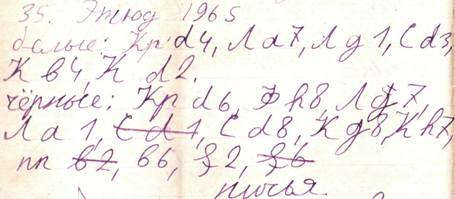 35. Этюд 1965
белые: Кр d4, Л a7, Л g1, С d3,
К в4, К d2.
чёрные: Кр d6, Ф h8, Л g7,
Л a1, С d1, С d8, К g8, К h7,
пп в2, в6, f2, f6
ничья